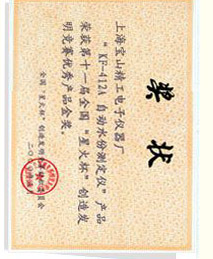 奖状
上海宝山精工电子仪器厂
“KF-412A自动水份测定仪”产品
荣获第十一届全国“星火杯”创造发
明竞赛优秀产品金奖。
全国“星火杯”创造发明